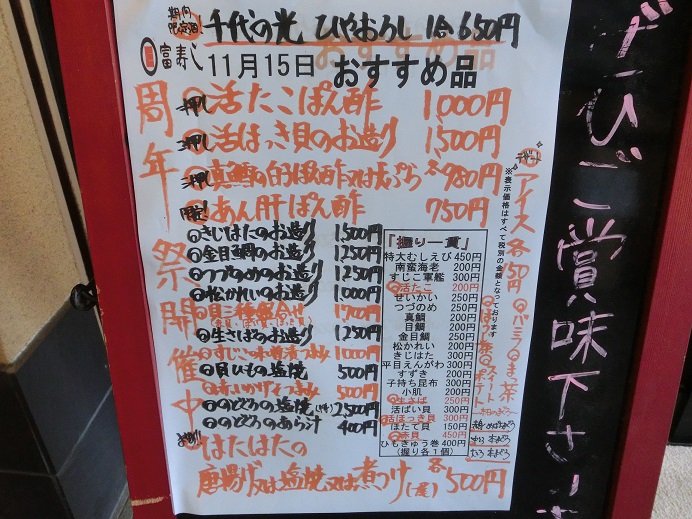 期間限定酒 千代の光 ひやおろし 1合 650円
富寿し 11月15日 おすすめ品
周年祭開催中
一押し 活たこぽん酢 1,000円
二押し 活ほっき貝のお造り 1,500円
三押し 真鱈の白子ぽん酢又は天ぷら 各980円
限定 あん肝ぽん酢 750円
きじはたのお造り 1,500円
金目鯛のお造り 1,250円
つづめのお造り 1,250円
松かれいのお造り 1,000円
貝三種盛合せ 1,700円
生さばのお造り 1,250円
すじこの味噌漬つまみ 1,000円
貝ひもの塩焼 500円
つまみ 500円
のどぐろの塩焼 2,500円
のどぐろのあら汁 400円
はたはたの
唐揚げ又は塩焼又は煮つけ(2尾) 各500円
「握り一貫」
特大むしえび 450円
南蛮海老 200円
すじこ軍艦 300円
活たこ 200円
せいかい 250円
つづのめ 250円
真鯛 200円
目鯛 200円
金目鯛 250円
松かれい 200円
きじはた 300円
平目えんがわ 300円
すずき 200円
子持ち昆布 300円
小肌 200円
生さば 250円
活ばい貝 300円
活ほっき貝 300円
ほたて貝 150円
味貝 450円
ひもきゅう巻 400円
(握り各1個)
※表示価格はすべて税別の金額となっております
デザート
アイス 各150円
バニラ
まっ茶
ほうじ茶
スイートポテト
ぜひご賞味下さい